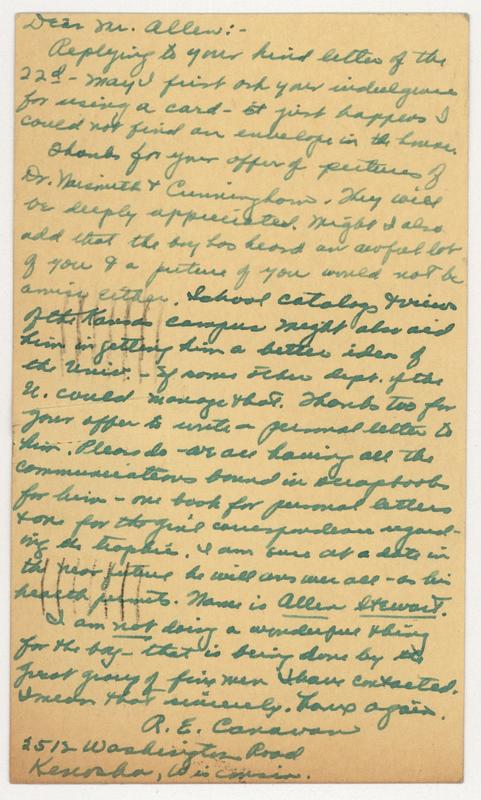 Dear Mr. Allen:-
Replying to your kind letter of the
22d - May I first ask your indulgence
for using a card - it just happens I
could not find an envelope in the house.
Thanks for your offer of pictures of
Dr. Naismith & Cunningham. They will
be deeply appreciated. Might I also
add that the boy has heard an awful lot
of you & a picture of you would not be
amiss either. School catalogs & views
of the Kansas campus might also aid
him in getting him a better idea of
the Univ. - If some other dept. of the
U. could manage that. Thanks too for
your offer to write a personal letter to
him. Please do - we are having all the
communications bound in scrapbooks
for him - one book for personal letters
& one for the correspondence regard-
ing the trophies. I am sure at a date in
the near future he will answer all - as his
health permits. Name is Allen Stewart.
I am not doing a wonderful thing
for the boy - that is being done by the
great group of fine men I have contacted.
I mean that sincerely. Thanx again.
R. E. Canavan
2512 Washington Road
Kenosha, Wisconsin.